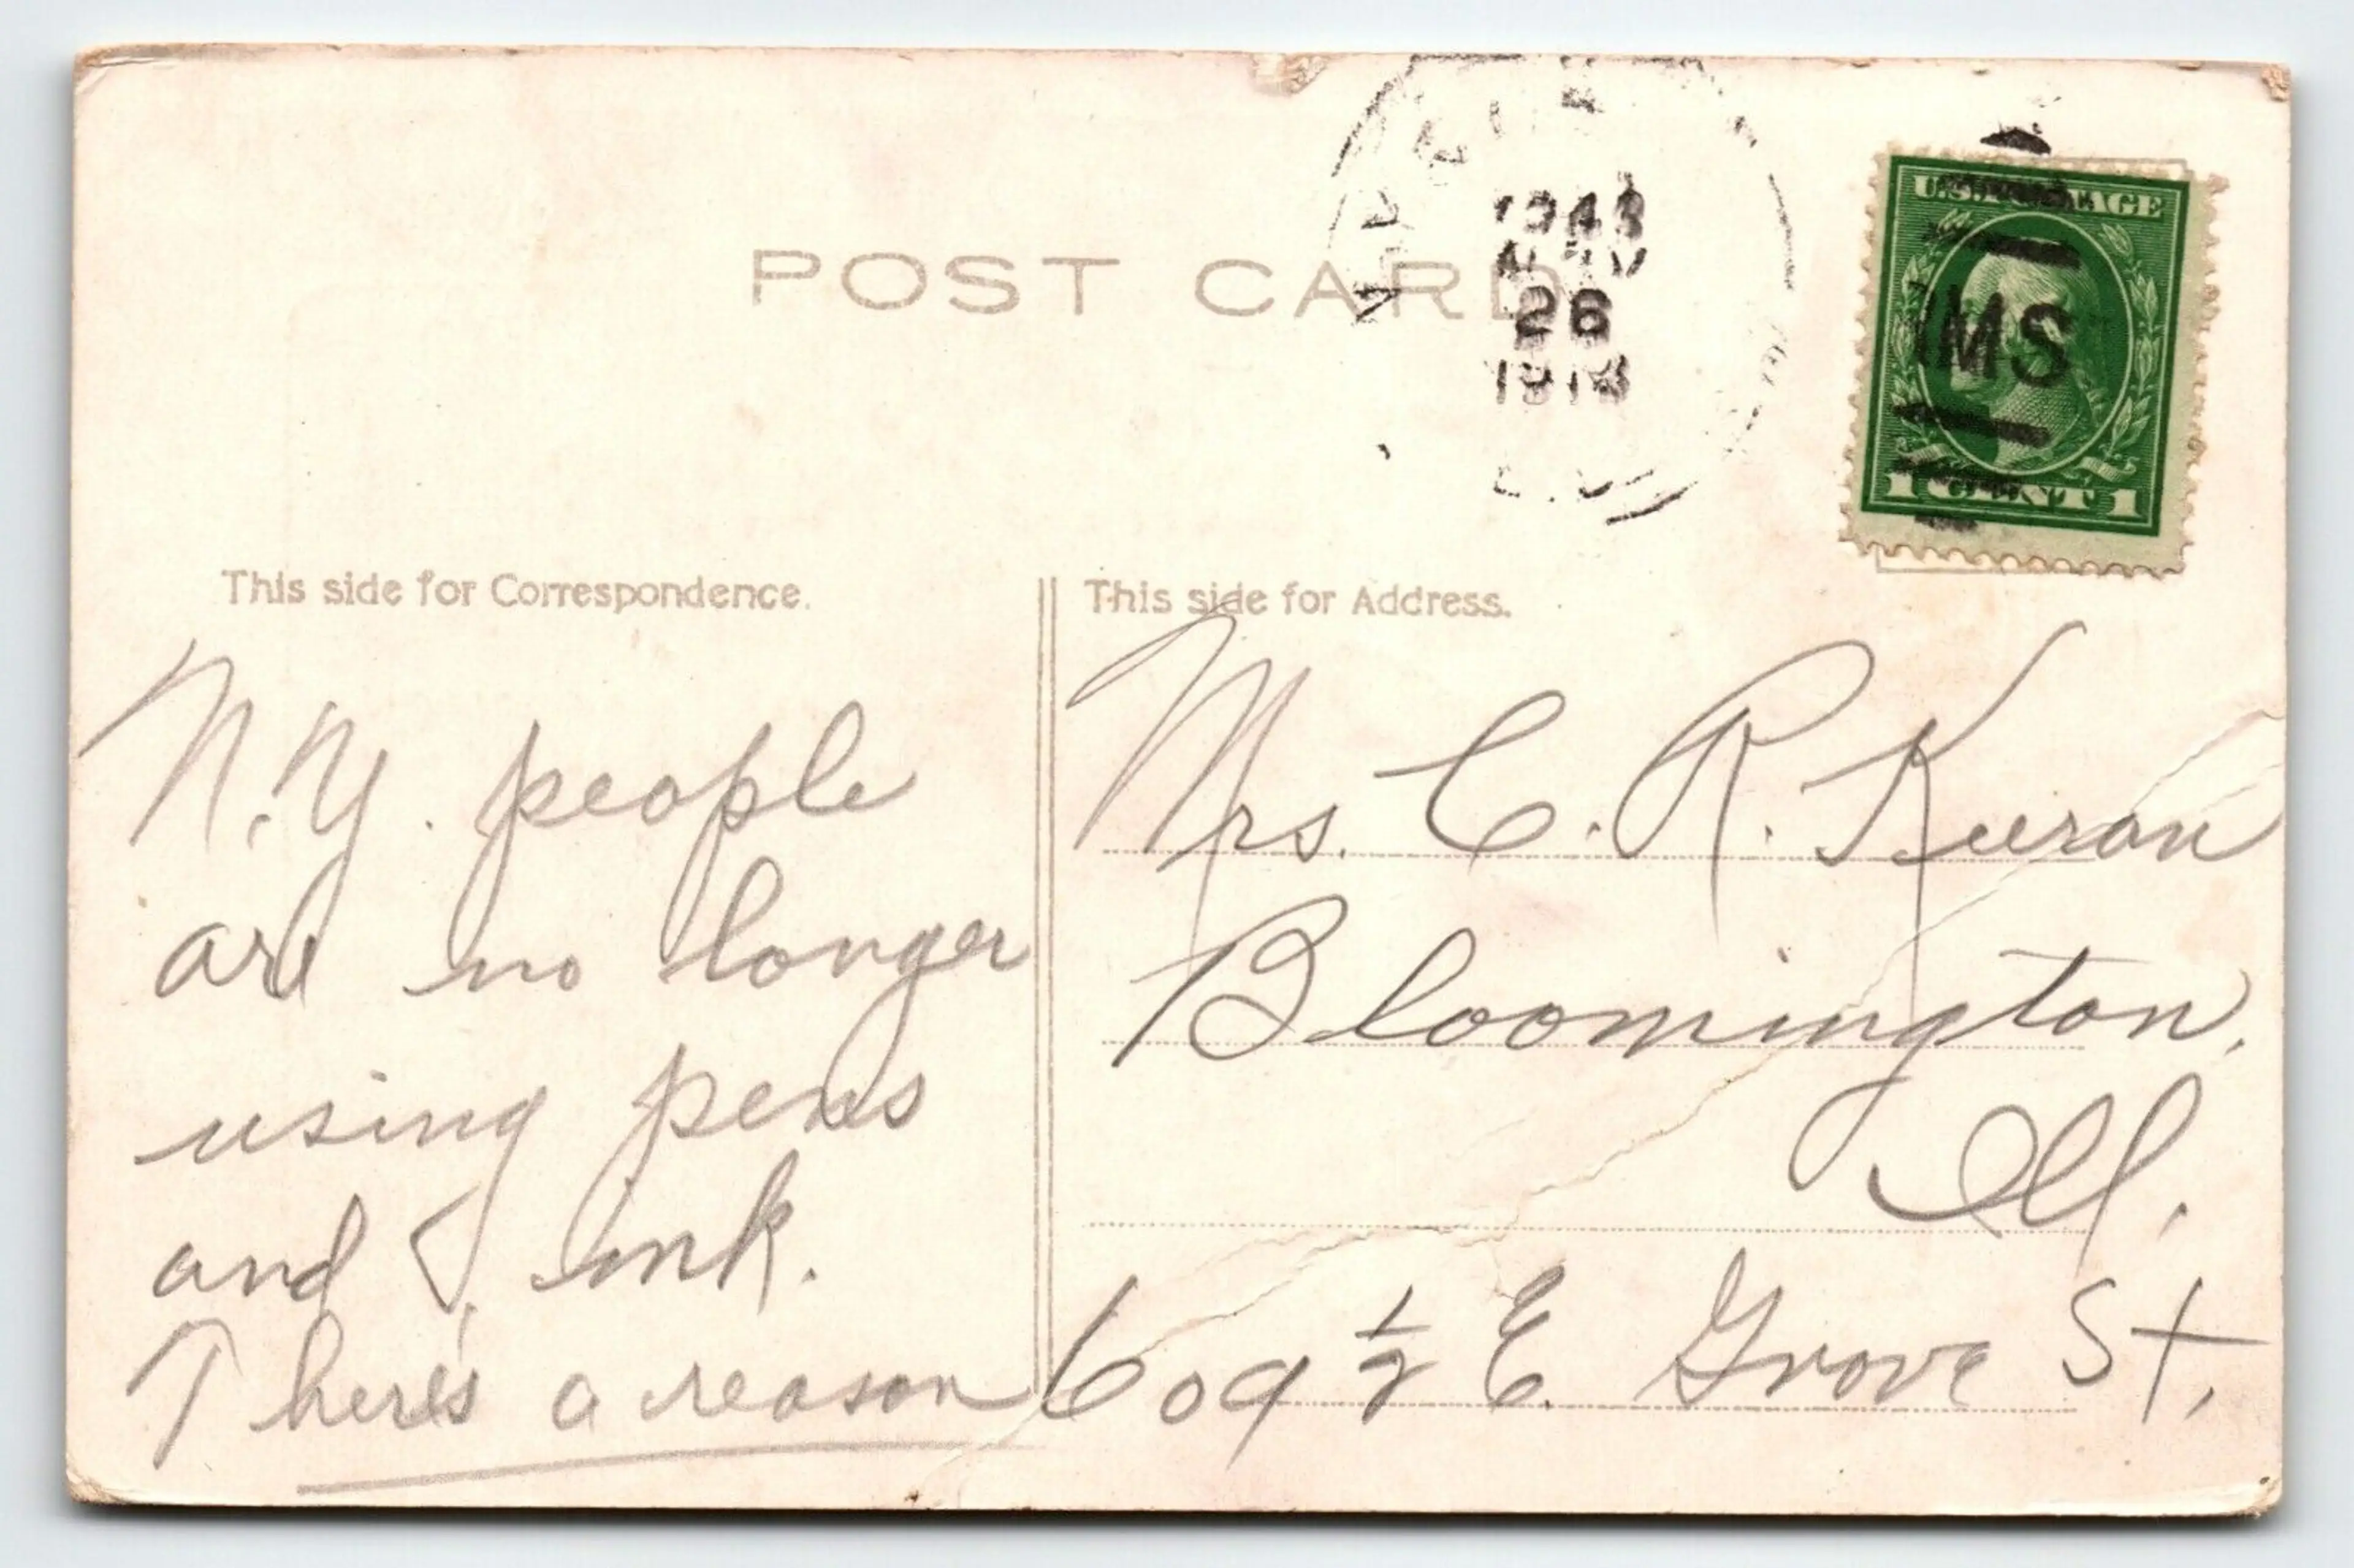 POST CARD
26
U.S. POSTAGE
MS
1 CENT 1
This side for Correspondence.
This side for Address.
N.Y. people
are no longer
using pens
and ink.
There's a reason
Mrs. C. R. Kieran
Bloomington,
Ill.
609 1/2 E. Grove St,